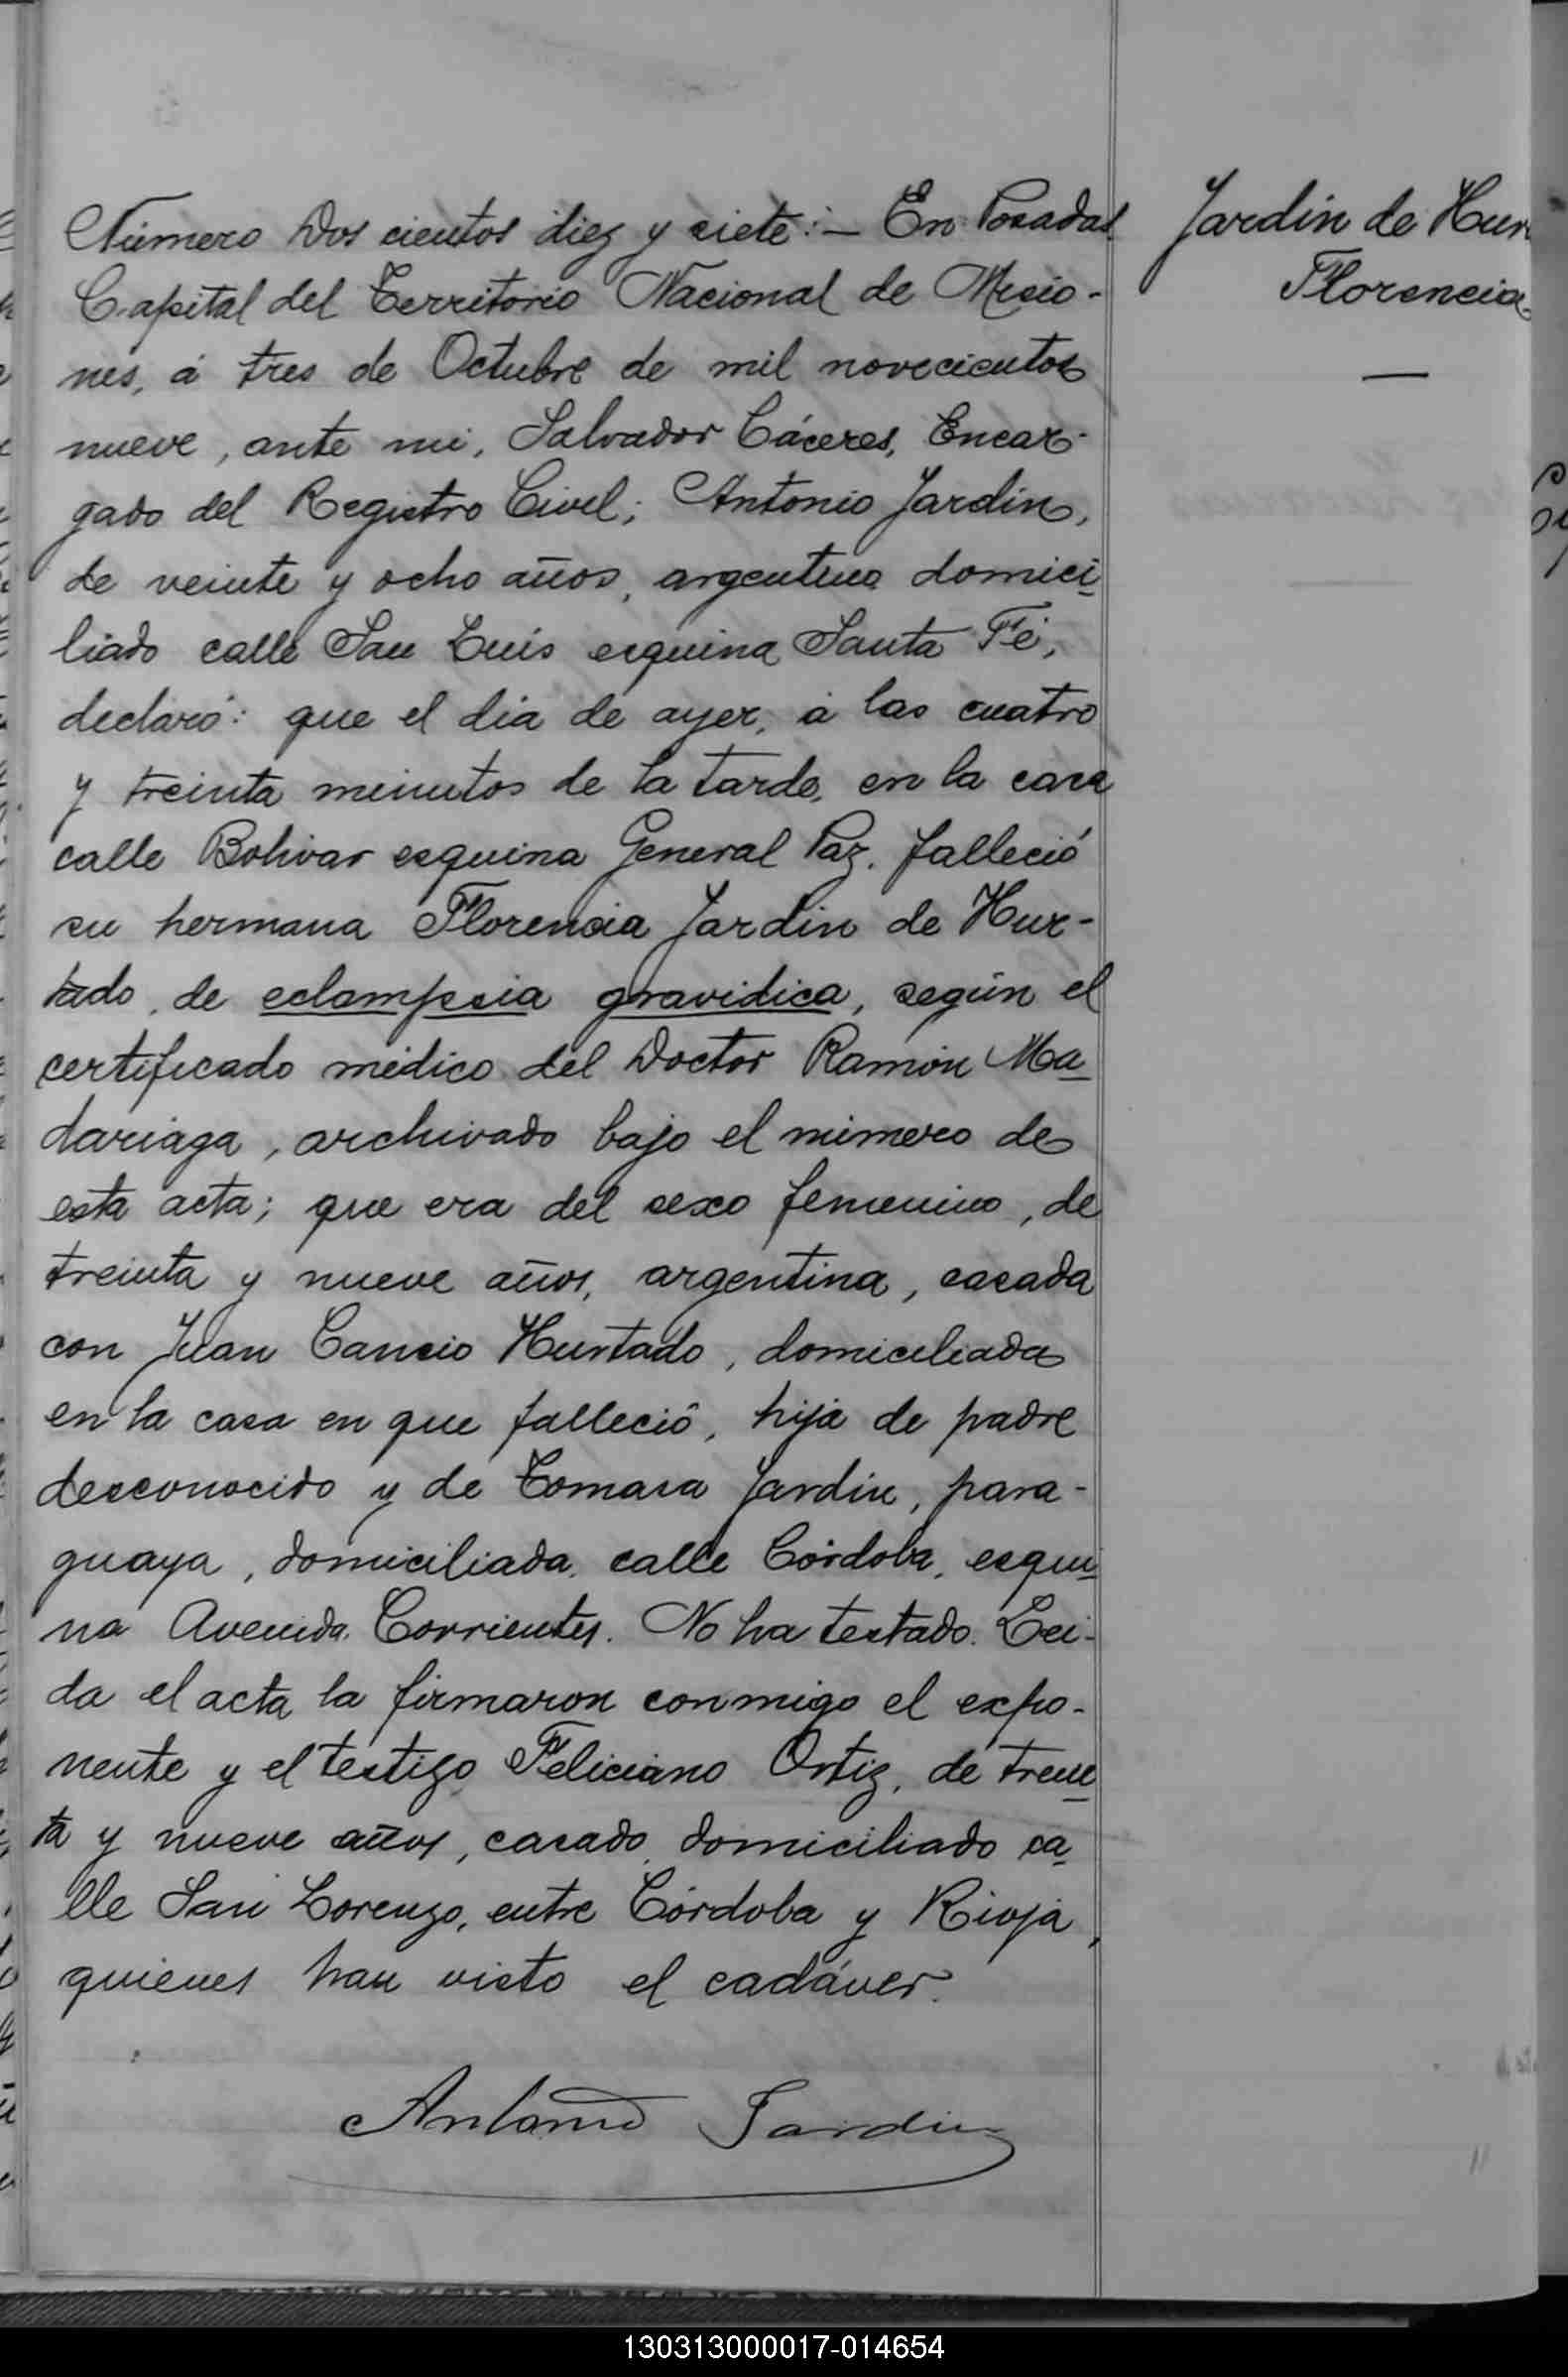 Número Dos cientos diez y siete:— En Posadas
Capital del Territorio Nacional de Misio-
nes, á tres de Octubre de mil novecientos
nueve, ante mi, Salvador Cáceres, Encar-
gado del Registro Civil; Antonio Jardin,
de veinte y ocho años, argentino domici
liado calle San Luis esquina Santa Fé,
declaró: que el dia de ayer, á las cuatro
y treinta minutos de la tarde, en la casa
calle Bolivar esquina General Paz, falleció
su hermana Florencia Jardin de Hur-
tado, de eclampsia gravidica, según el
certificado médico del Doctor Ramón Ma
dariaga, archivado bajo el número de
esta acta; que era del sexo femenino, de
treinta y nueve años, argentina, casada
con Juan Cancio Hurtado, domiciliada
en la casa en que falleció, hija de padre
desconocido y de Tomasa Jardin, para-
guaya, domiciliada calle Córdoba, esqui
na Avenida Corrientes. No ha testado. Lei-
da el acta la firmaron conmigo el expo-
nente y el testigo Feliciano Ortiz, de trein
ta y nueve años, casado, domiciliado ca
lle San Lorenzo, entre Córdoba y Rioja,
quienes han visto el cadáver.
Antonio Jardin
Jardin de Hur
Florencia
130313000017-014654